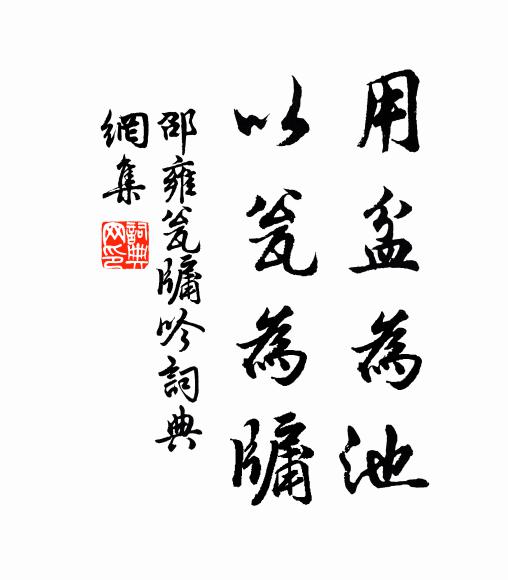 用盆為池
以瓮為牖
邵雍瓮牖吟詞典
網集
詞典網印